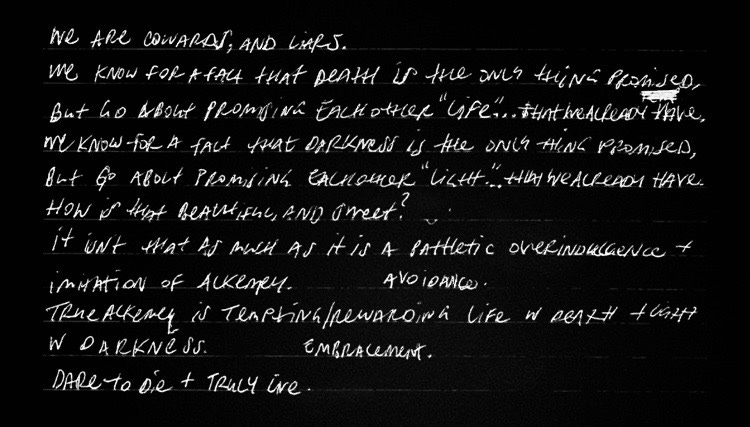 WE ARE COWARDS, AND LIARS.
WE KNOW FOR A FACT THAT DEATH IS THE ONLY THING PROMISED,
BUT GO ABOUT PROMISING EACHOTHER "LIFE"... THAT WE ALREADY HAVE,
WE KNOW FOR A FACT THAT DARKNESS IS THE ONLY THING PROMISED,
BUT GO ABOUT PROMISING EACHOTHER "LIGHT"... THAT WE ALREADY HAVE.
HOW IS THAT BEAUTIFUL, AND SWEET?
IT ISNT THAT AS MUCH AS IT IS A PATHETIC OVERINDULGENCE +
IMITATION OF ALKEMY. AVOIDANCE.
TRUE ALKEMY IS TEMPTING/REWARDING LIFE W DEATH + LIGHT
W DARKNESS. EMBRACEMENT.
DARE TO DIE + TRULY LIVE.